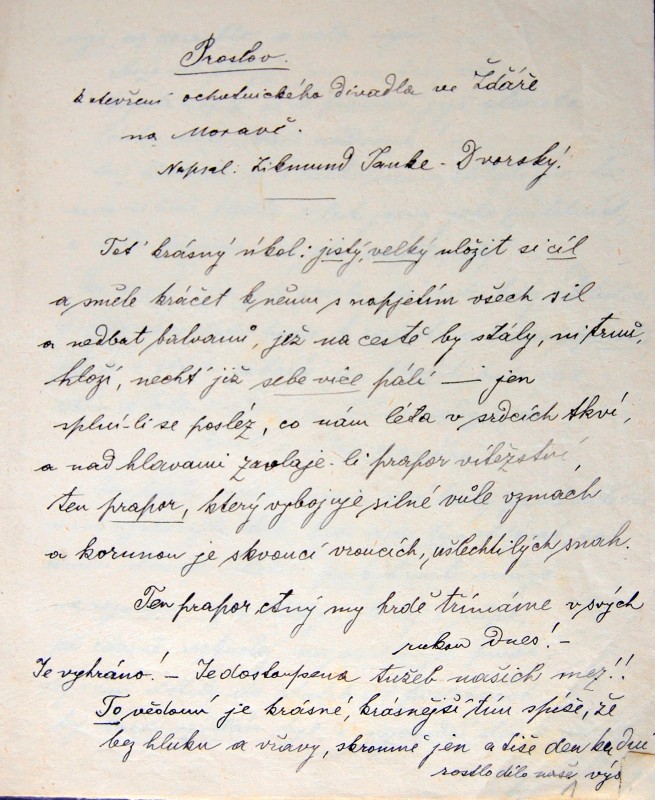 Proslov.
k otevření ochotnického divadla ve Žďáře
na Moravě.
Napsal: Zikmund Janke - Dvorský.
Toť krásný úkol: jistý, velký uložit si cíl
a směle kráčet k němu s napjetím všech sil
a nedbat balvanů, jež na cestě by stály, ni trnů,
hloží, nechť již sebe více pálí — jen
splní-li se posléz, co nám léta v srdcích tkví,
a nad hlavami zavlaje-li prapor vítězství
ten prapor, který vybojuje silné vůle vzmach
a korunou je skvoucí vroucích, ušlechtilých snah.
Ten prapor ctný my hrdě třímáme v svých
rukou dnes! –
Je vyhráno! – Je dostoupena tužeb našich mez!!
To vědomí je krásné, krásnější tím spíše, že
bez hluku a vřavy, skromně jen a tiše den ke dni
rostlo dílo naše výš